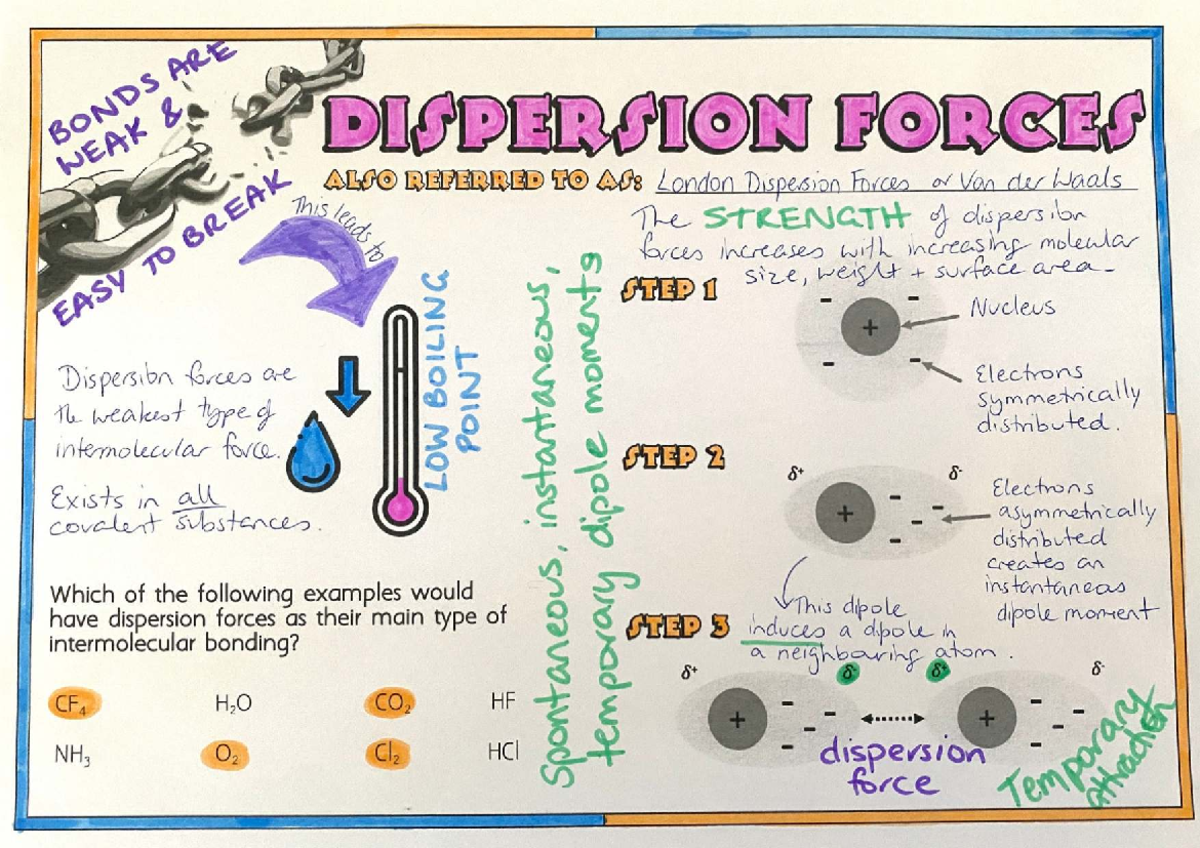 BONDS ARE
WEAK &
EASY TO BREAK
DISPERSION FORCES
ALSO REFERRED TO AS: London Dispersion Forces or Van der Waals
This leads to
The STRENGTH of dispersion
forces increases with increasing molecular
size, weight + surface area.
LOW BOILING
POINT
Dispersion forces are
the weakest type of
intermolecular force.
Exists in all
covalent substances.
Spontaneous, instantaneous,
temporary dipole moments
STEP 1
- -
+
- -
Nucleus
Electrons
symmetrically
distributed.
STEP 2
δ+ δ-
+ - - - -
Electrons
asymmetrically
distributed
creates an
instantaneous
dipole moment
STEP 3
This dipole
induces a dipole in
a neighbouring atom.
δ+ δ- δ+ δ-
+ - - - + - - - -
dispersion
force
Temporary
attraction
Which of the following examples would
have dispersion forces as their main type of
intermolecular bonding?
CF₄ H₂O CO₂ HF
NH₃ O₂ Cl₂ HCl